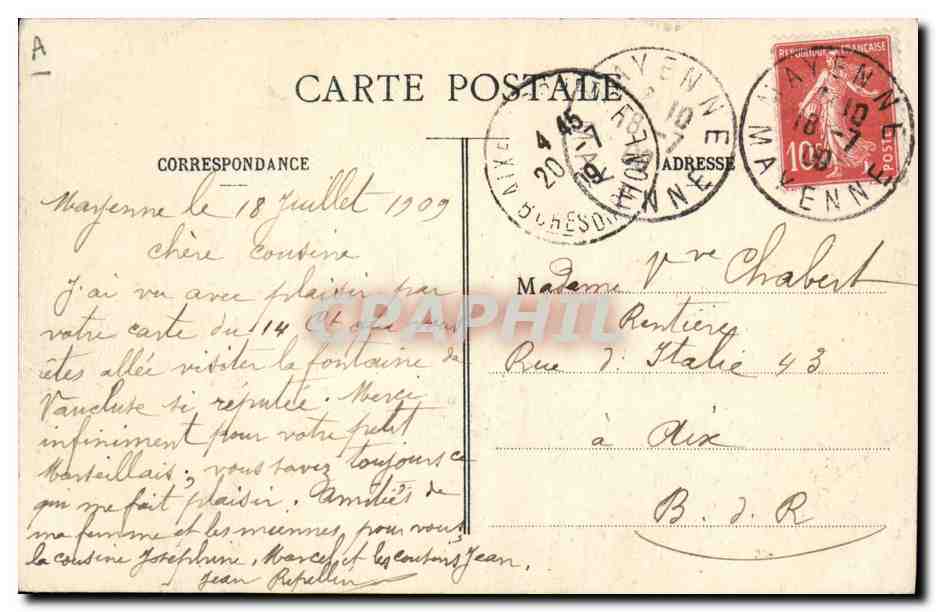 A
CARTE POSTALE
REPUBLIQUE FRANÇAISE
10c
POSTES
MAYENNE
18 -7
09
MAYENNE
AIX
4 45
20 -7
09
CORRESPONDANCE
ADRESSE
Mayenne le 18 Juillet 1909
chère cousine
J'ai vu avec plaisir par
votre carte du 14 Ct que vous
êtes allée visiter la fontaine de
Vaucluse si réputée. Merci
infiniment pour votre petit
Marseillais, vous savez toujours ce
qui me fait plaisir. Amitiés de
ma femme et les miennes pour vous,
la cousine Joséphine, Marcel et les cousins Jean.
Jean
Madame Vve Chabert
Rentière
Rue d'Italie 43
à Aix
B. d. R
CPAPHIL